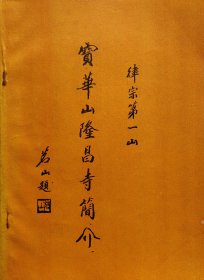 律宗第一山
寶華山隆昌寺簡介
茗山題